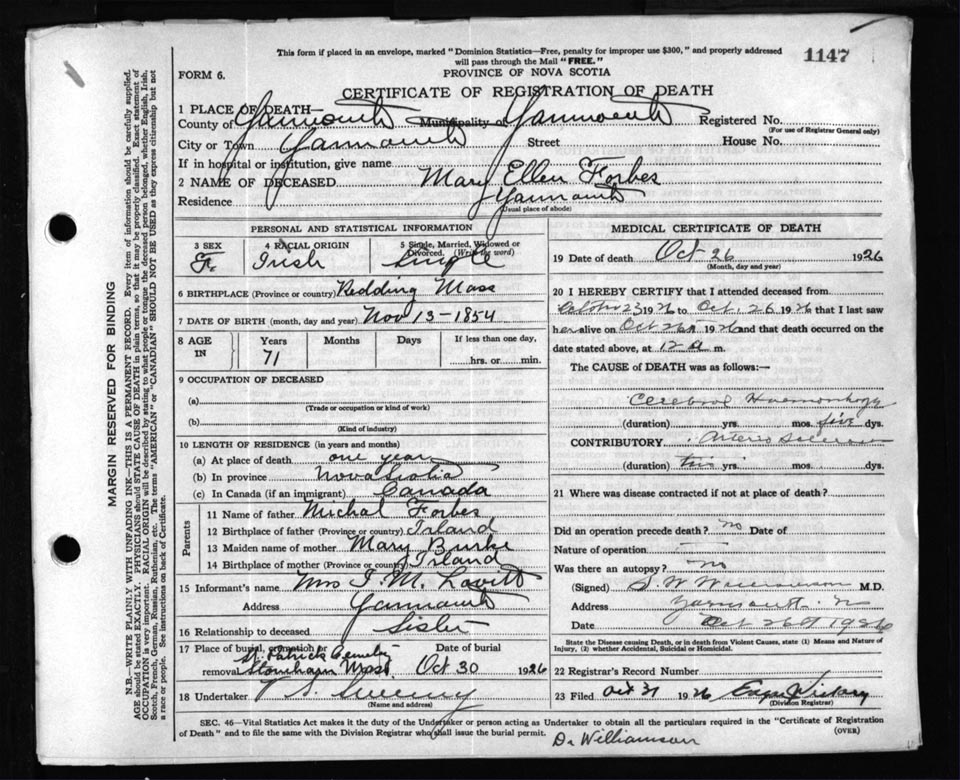 This form if placed in an envelope, marked "Dominion Statistics—Free, penalty for improper use $300," and properly addressed
will pass through the Mail "FREE."
1147
FORM 6.
PROVINCE OF NOVA SCOTIA
CERTIFICATE OF REGISTRATION OF DEATH
1 PLACE OF DEATH—
County of Yarmouth Municipality of Yarmouth Registered No.
(For use of Registrar General only)
City or Town Yarmouth Street House No.
If in hospital or institution, give name
2 NAME OF DECEASED Mary Ellen Forbes
Residence Yarmouth
(Usual place of abode)
PERSONAL AND STATISTICAL INFORMATION
3 SEX F. 4 RACIAL ORIGIN Irish 5 Single, Married, Widowed or Divorced. (Write the word) Single
6 BIRTHPLACE (Province or country) Redding Mass
7 DATE OF BIRTH (month, day and year) Nov 13-1854
8 AGE IN Years 71 Months Days If less than one day, hrs. or min.
9 OCCUPATION OF DECEASED
(a)
(Trade or occupation or kind of work)
(b)
(Kind of industry)
10 LENGTH OF RESIDENCE (in years and months)
(a) At place of death one year
(b) In province Nova Scotia
(c) In Canada (if an immigrant) Canada
Parents
11 Name of father Michal Forbes
12 Birthplace of father (Province or country) Irland
13 Maiden name of mother Mary Burke
14 Birthplace of mother (Province or country) Irland
15 Informant's name Mrs I. M. Lovitt
Address Yarmouth
16 Relationship to deceased Sister
17 Place of burial, cremation or removal St. Patricks Cemetery Stoneham Mass. Date of burial Oct 30 1926
18 Undertaker
(Name and address)
MEDICAL CERTIFICATE OF DEATH
19 Date of death Oct 26 1926
(Month, day and year)
20 I HEREBY CERTIFY that I attended deceased from
October 23 1926 to Oct. 26 1926 that I last saw
her alive on Oct 26 1926 and that death occurred on the
date stated above, at 12 a m.
The CAUSE of DEATH was as follows:—
Cerebral Haemorrhage
(duration) yrs. mos. five dys.
CONTRIBUTORY Arterio Sclerosis
(duration) yrs. mos. dys.
21 Where was disease contracted if not at place of death?
Did an operation precede death? no Date of
Nature of operation
Was there an autopsy? no
(Signed) S W Williamson M.D.
Address Yarmouth. N
Date Oct 26 1926
State the Disease causing Death, or in death from Violent Causes, state (1) Means and Nature of
Injury, (2) whether Accidental, Suicidal or Homicidal.
22 Registrar's Record Number
23 Filed Oct 31 1926
(Division Registrar)
SEC. 46—Vital Statistics Act makes it the duty of the Undertaker or person acting as Undertaker to obtain all the particulars required in the "Certificate of Registration
of Death" and to file the same with the Division Registrar who shall issue the burial permit.
(OVER)
Dr Williamson
MARGIN RESERVED FOR BINDING
N.B.—WRITE PLAINLY WITH UNFADING INK—THIS IS A PERMANENT RECORD. Every item of information should be carefully supplied.
AGE should be stated EXACTLY. PHYSICIANS should STATE CAUSE OF DEATH in plain terms, so that it may be properly classified. Exact statement of
OCCUPATION is very important. RACIAL ORIGIN will be described by stating to what people or tongue the deceased person belonged, whether English, Irish,
Scotch, French, German, Russian, Ruthenian, etc. The terms "AMERICAN" or "CANADIAN" SHOULD NOT BE USED as they express citizenship but not
a race or people. See instructions on back of Certificate.